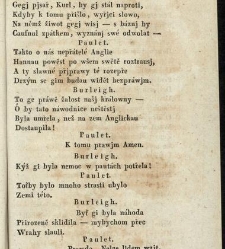 Gegj pjsař, Kurl, by gj stál naproti,
Kdyby k tomu přišlo, wyrjci slowa,
Na němž život gegj wisj — s bázní by
Caufaul zpátkem, wyznáwj swé odwolat
Paulet.
Takto o nás nepřátelé Anglie
Hannau powěst po wšem swětě roztausj,
A ty slawné přjprawy té rozepře
Drzým se gim budau widět bezprawjm.
Burleigh.
To ge práwě žalost mágj králowny —
O by táto náwodnice neřestj
Byla umřela, než na zem Anglickau
Dostaupila!
Paulet.
K tomu prawjm Amen.
Burleigh.
Kýž gi byla nemoc w pautách potřela!
Paulet.
Toťby bylo mnoho strasti ubylo
Zemi této.
Burleigh.
Byť gi byla náhoda
Přirozeně sklidila — nybychom přec
Wrahy slauli.
Paulet.